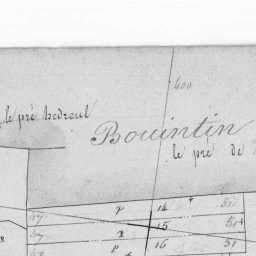 400
le pré hedreul
Bouintin
le pré de
p 14 51
x 15 51
p 16 51